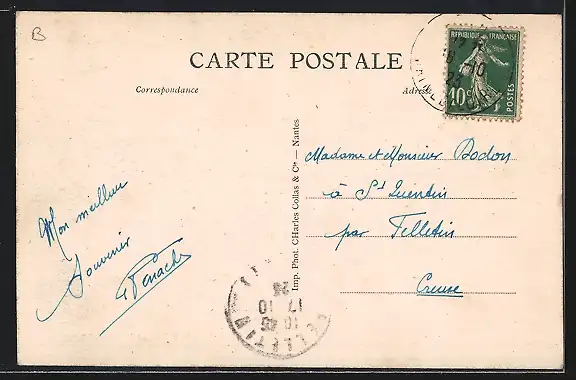 B
CARTE POSTALE
Correspondance
Adresse
REPUBLIQUE FRANÇAISE
10c
POSTES
Imp. Phot. CHarles Collas & Cie — Nantes
Madame et Monsieur Bodon
à St Quentin
par Felletin
Creuse
Mon meilleur
Souvenir
FELLETIN
10 45
17 10
24